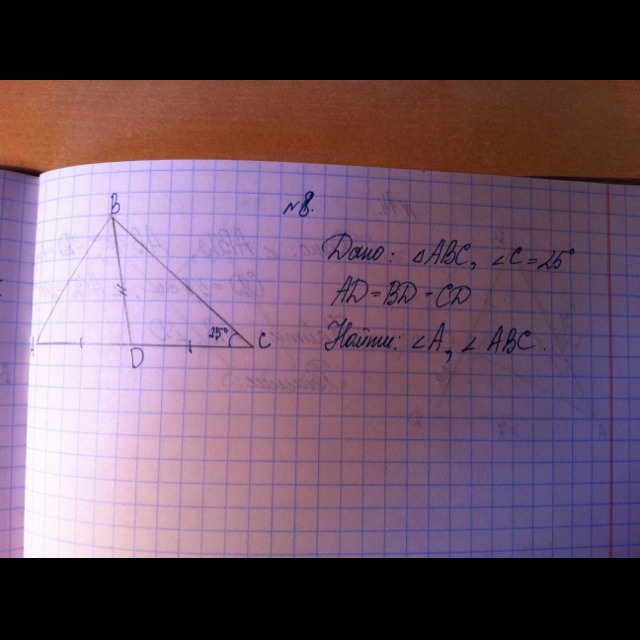 B
№8.
Дано: △ABC, ∠C=25°
AD=BD=CD
Найти: ∠A, ∠ABC.
25° C
D